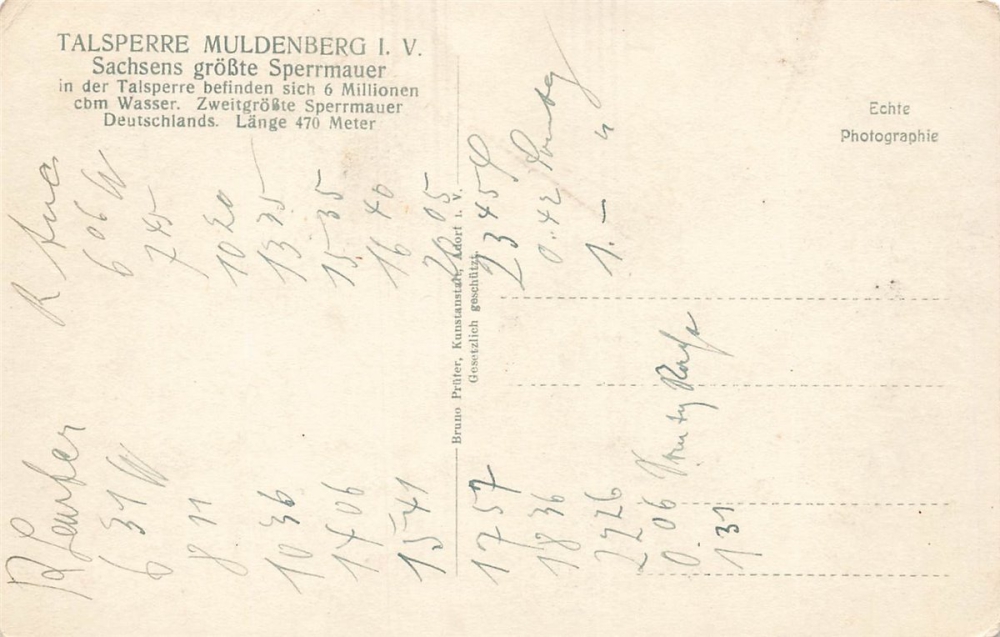 TALSPERRE MULDENBERG I. V.
Sachsens größte Sperrmauer
in der Talsperre befinden sich 6 Millionen
cbm Wasser. Zweitgrößte Sperrmauer
Deutschlands. Länge 470 Meter
Echte
Photographie
Bruno Prüfer, Kunstanstalt, Adorf i. V.
Gesetzlich geschützt.
6 06 W
7 45
10 20
15 35
16 40
20 05
23 45
0.42
1.–
6 31 W
8.11
10 36
14 06
15 41
17 57
18 36
22 26
0.06
1 31